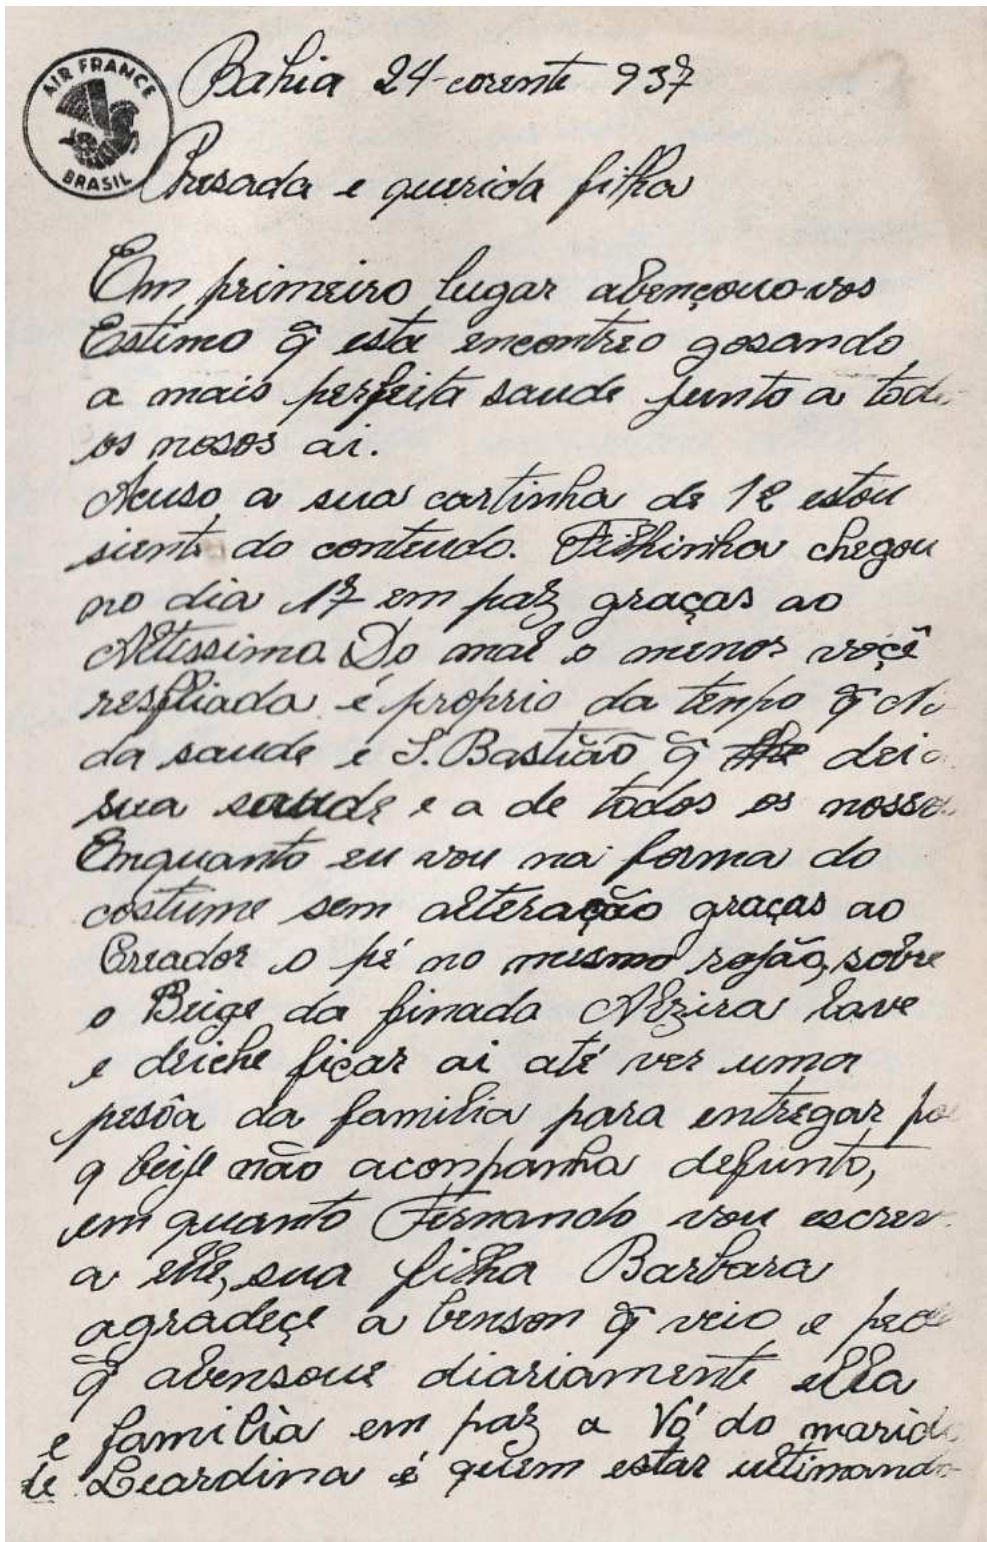 AIR FRANCE
BRASIL
Bahia 24-corente 937
Presada e querida filha
Em primeiro lugar abençouo-vos
Estimo q̃ esta encontreo gosando
a mais perfeita saude junto a tod
os nosos ai.
Acuso a sua cartinha de 12 estou
sient do conteudo. Filhinha chegou
no dia 17 em paz graças ao
Altissimo. Do mal o menor voçê
resfliada é proprio da tempo q̃ N.
da saude e S. Bastião q̃ dei
sua saude e a de todos os nosso
Enquanto eu vou na forma do
costume sem alteração graças ao
Creador o pé no mesmo rojão, sobre
o Beige da finada Alzira lave
e deiche fiçar ai até ver uma
pesôa da familia para entregar po
q beije não aconpanha defunto,
em quanto Fernando vou escrev
a elle, sua filha Barbara
agradeçe a benson q̃ veio e pede
q̃ abensoue diariamente ella
e familia em paz a Vó do marido
de Leardina é quem estar ultimando